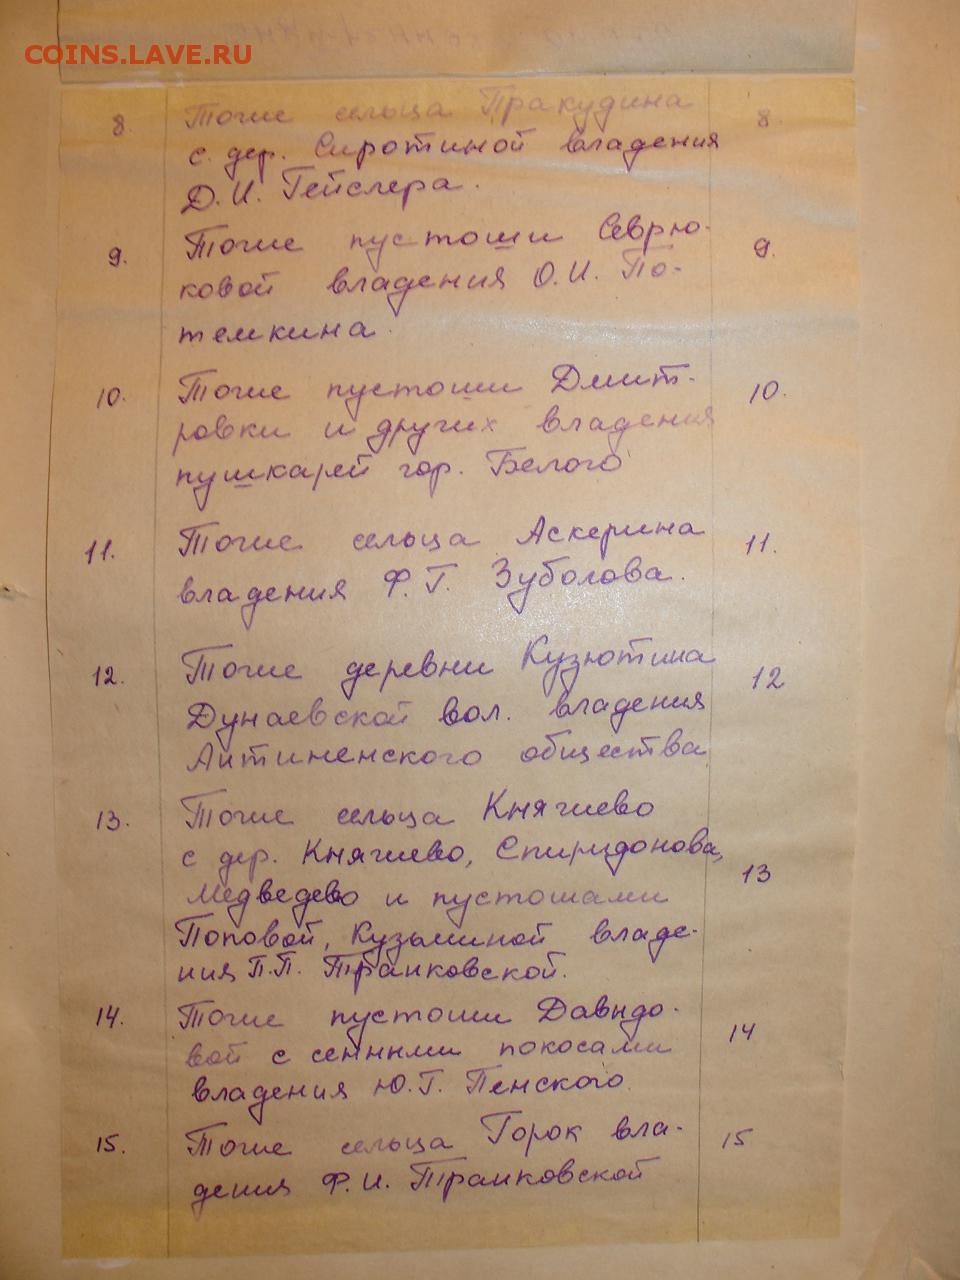 COINS.LAVE.RU
8. Тоже сельца Пракудина 8
с. дер. Сиротиной владения
Д.И. Гейслера.
9. Тоже пустоши Севрю- 9.
ковой владения О.И. По-
темкина.
10. Тоже пустоши Дмит- 10.
ровки и других владения
пушкарей гор. Белого
11. Тоже сельца Аскерина 11.
владения Ф.Г. Зуболова.
12. Тоже деревни Кузютина 12
Дунаевской вол. владения
общества
13. Тоже сельца Княжево
с дер. Княжево, Спиридонова,
Медведево и пустошами 13
Поповой, Кузьминой владе-
ния П.П. Транковской.
14. Тоже пустоши Давыдо- 14
вой с сенными покосами
владения Ю.Г. Пенского.
15. Тоже сельца Горок вла- 15
дения Ф.И. Транковской